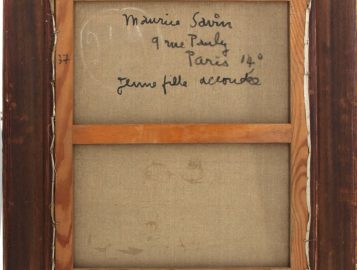 Maurice Savin
9 rue Pruly
Paris 14°
Jeune fille accoudée
37